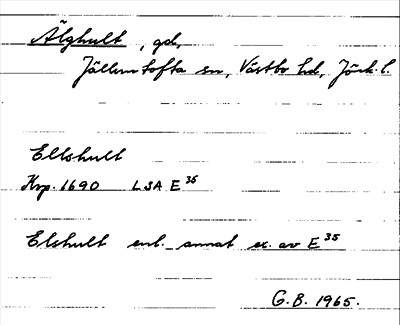 Älghult, gd,
Jälluntofta sn, Västbo hd, Jönk. l.
Ellshult
Krp. 1690 LSA E 35
Elshult enl. annat ex. av E 35
G.B. 1965.